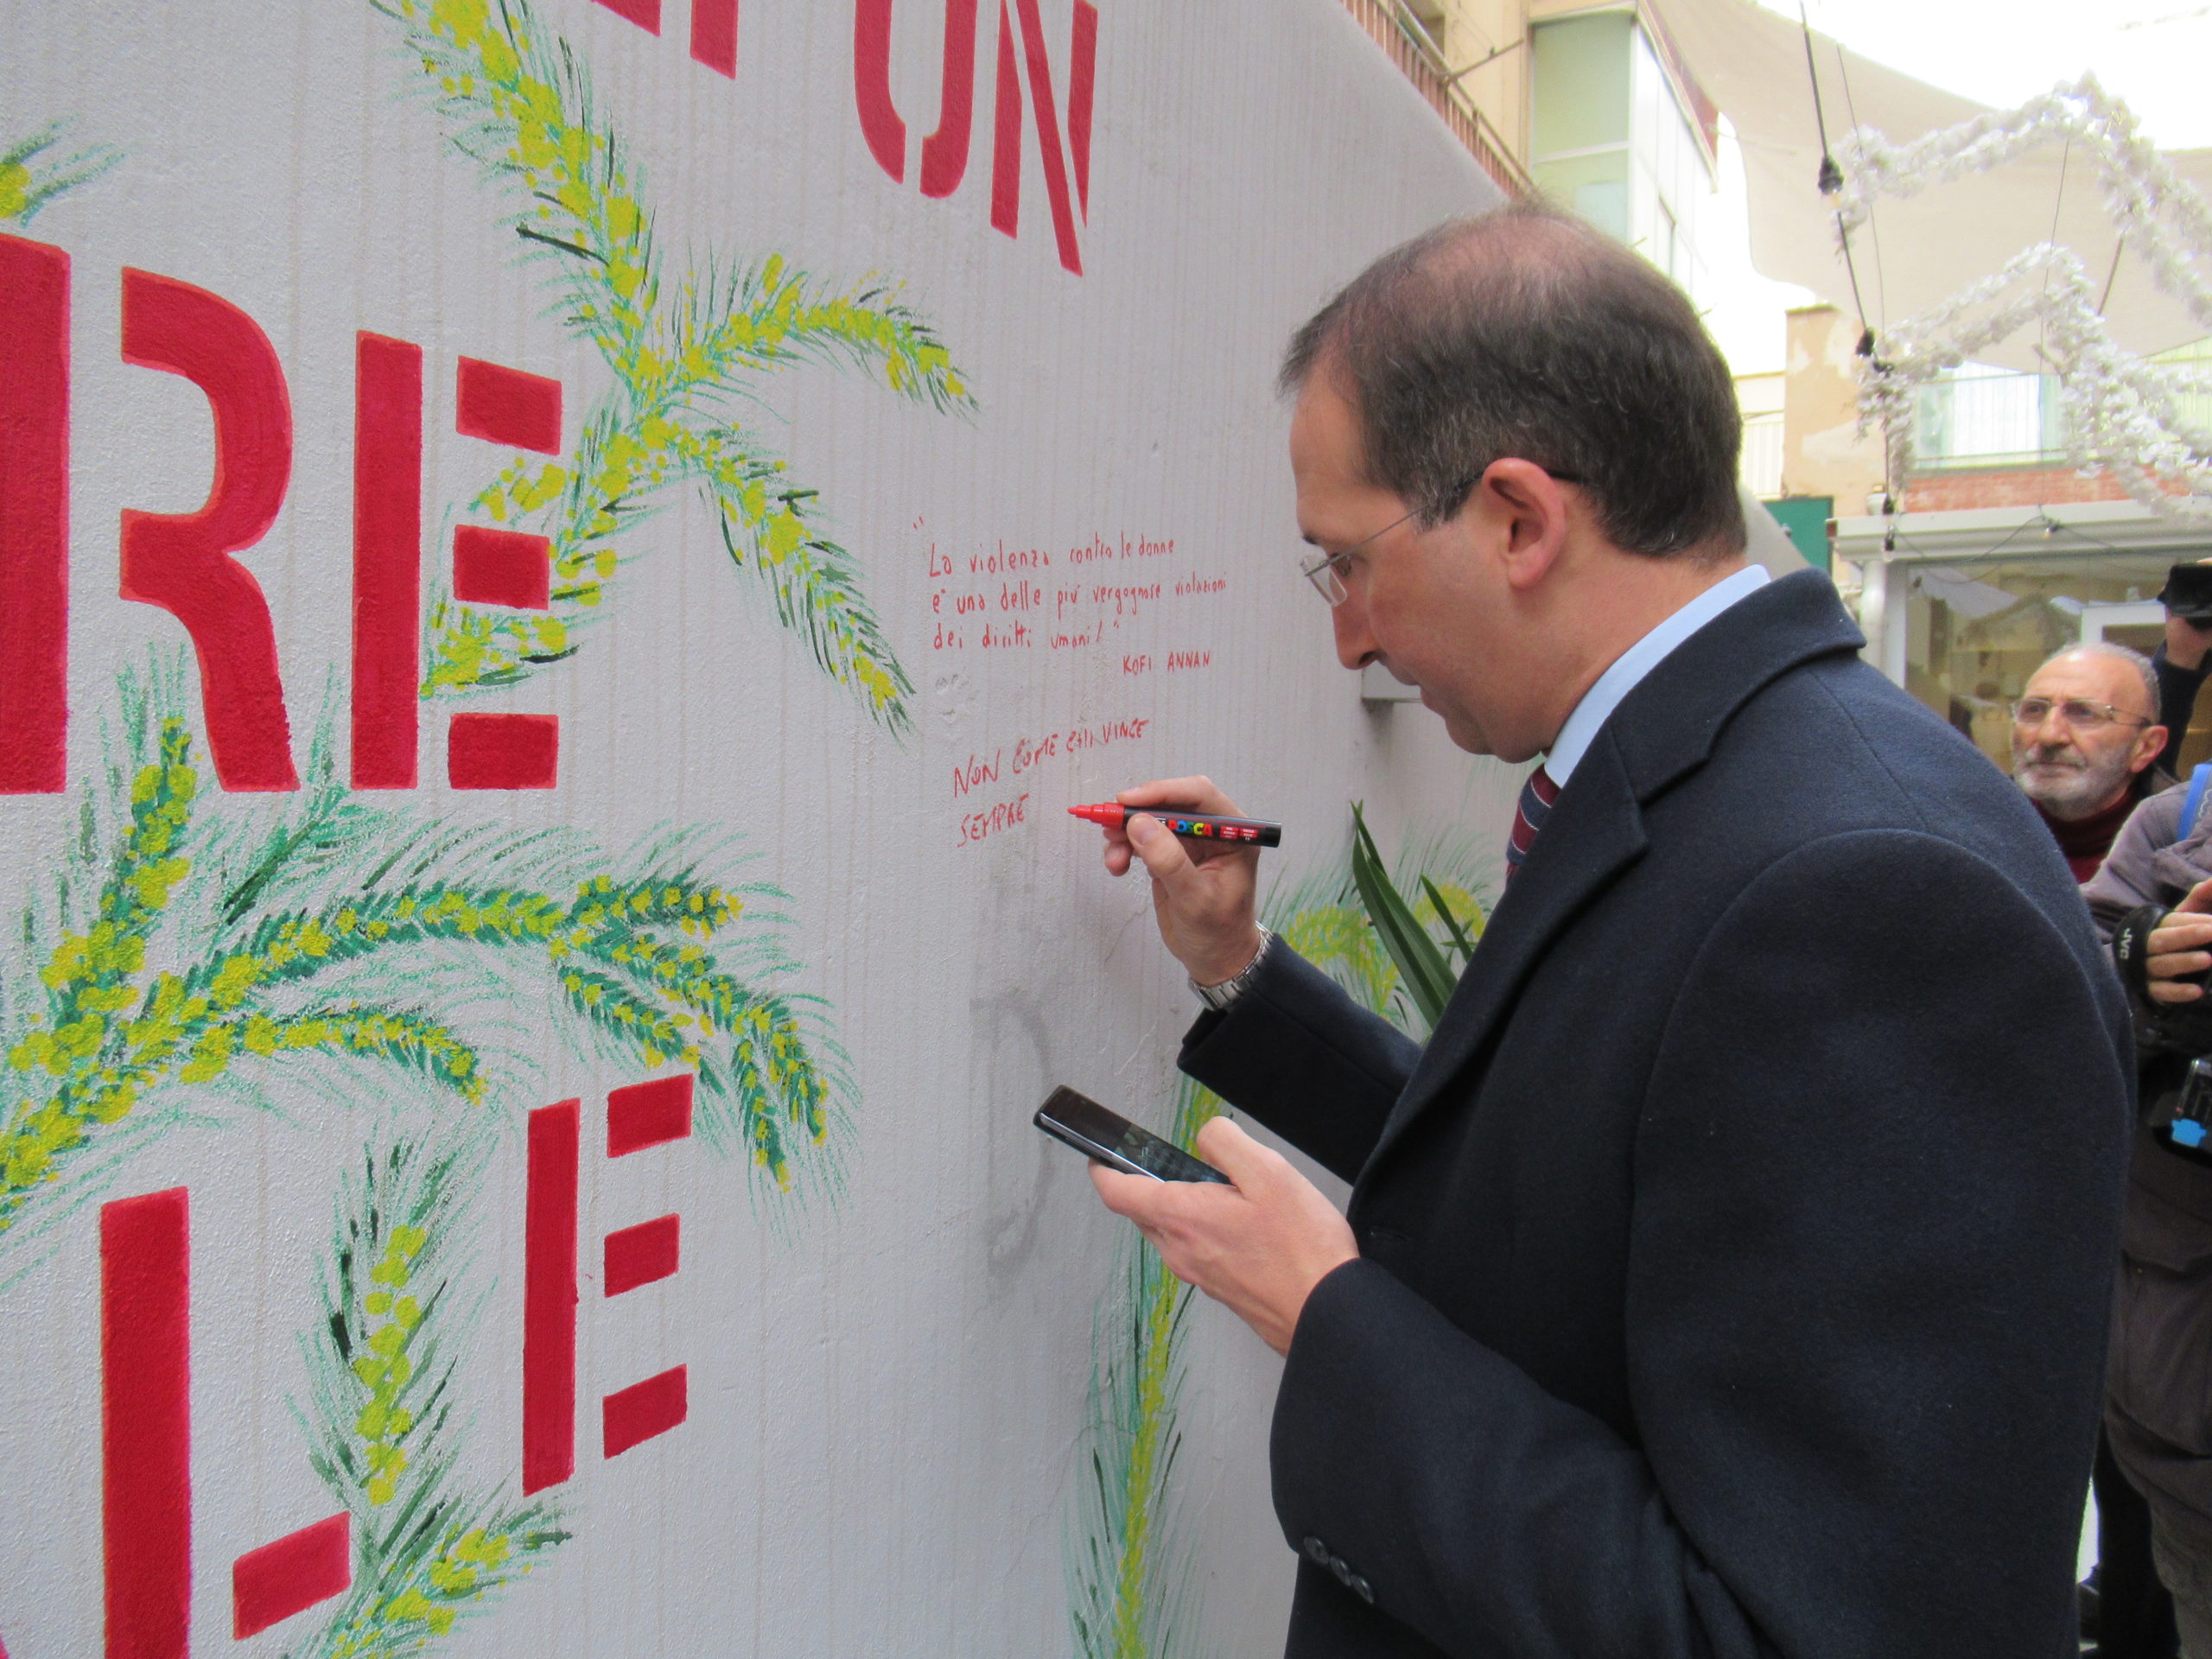 UN
RE
"La violenza contro le donne
e' una delle più vergognose violazioni
dei diritti umani!"
KOFI ANNAN
NON COME CHI VINCE
SEMPRE
POSCA
E
JVC